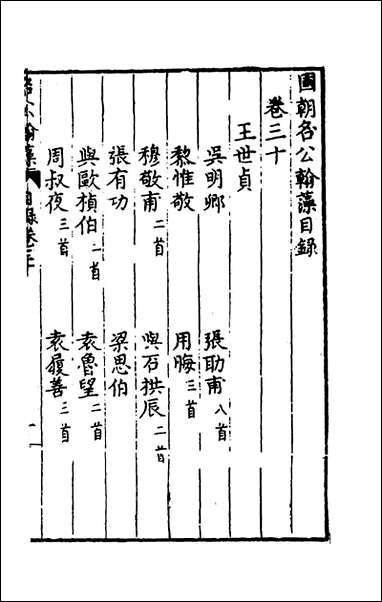 國朝名公翰藻目錄
卷三十
王世貞
吳明卿
張助甫八首
黎惟敬
用晦三首
穆敬甫二首
與石拱辰二首
張有功
梁思伯
與歐楨伯二首
袁魯望二首
周叔夜三首
袁履善三首